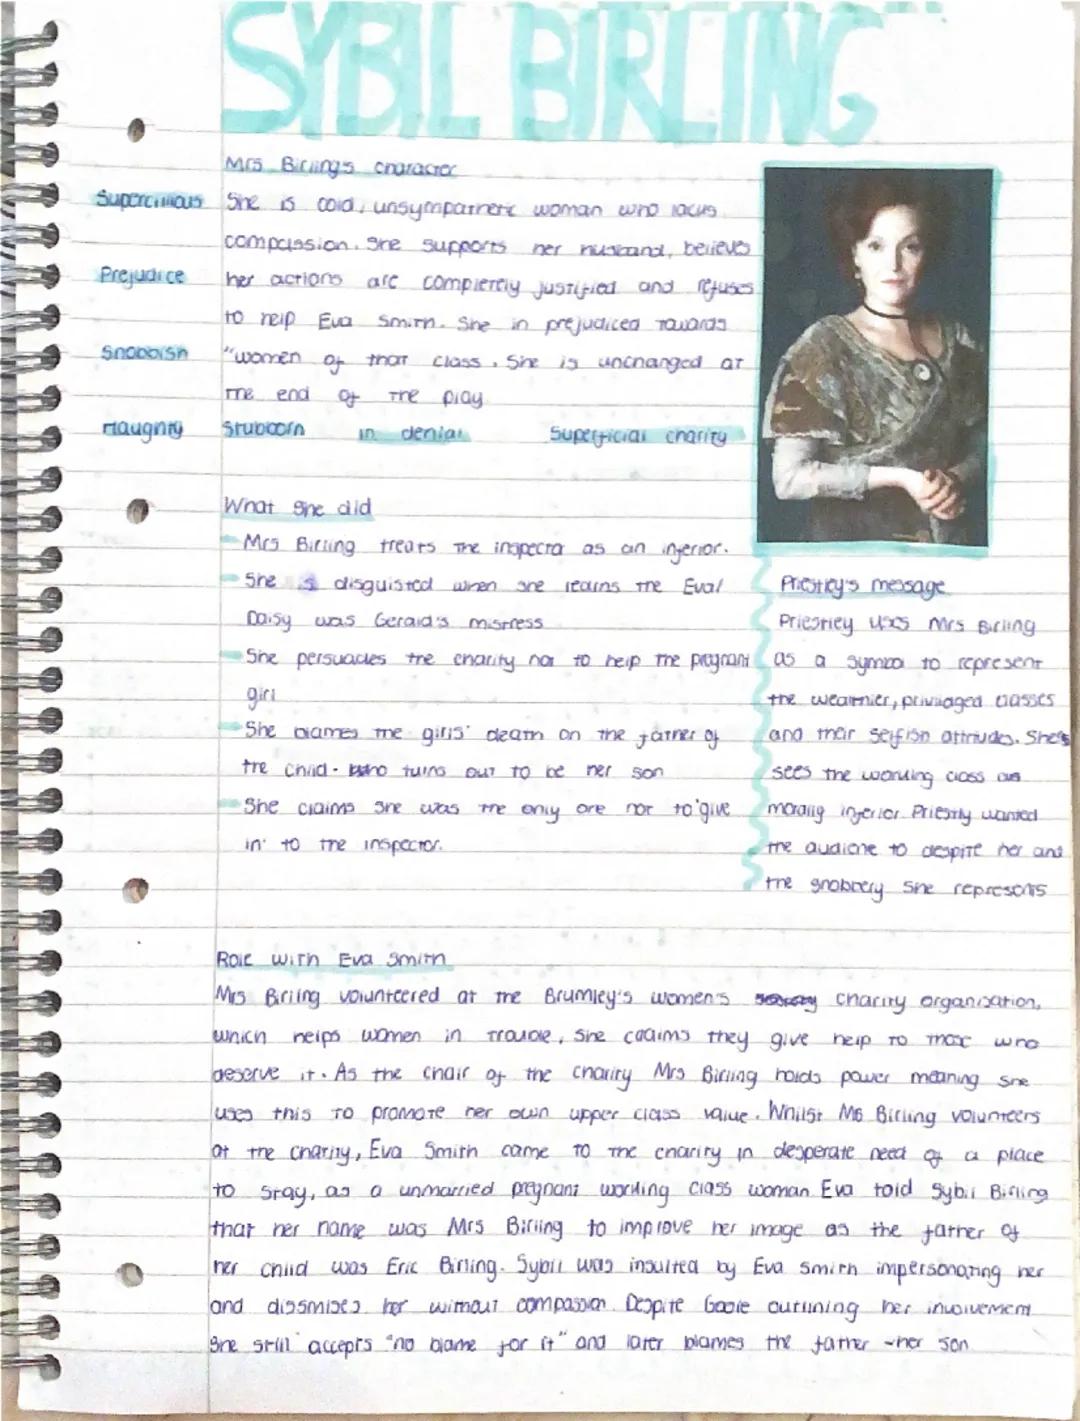 SYBIL BIRLING
Mrs Birling's character
Supercilious
She is cold, unsympathetic woman who lacks
compassion. She supports her husband, believes
Prejudice
her actions are completely justified and refuses
to help Eva Smith. She in prejudiced towards
Snobbish
"women of that class. She is unchanged at
the end of the play
Haughty Stubborn in denial Superficial charity
What she did
- Mrs Birling treats the inspector as an inferior.
- She is disguisted when she learns the Eva/
Daisy was Gerald's mistress
- She persuades the charity not to help the pregnant
girl
- She blames the girls' death on the father of
the child - who turns out to be her son
- She claims she was the only one not to 'give
in' to the inspector.
Priestley's message
Priestley uses Mrs Birling
as a symbol to represent
the wealthier, privilaged classes
and their selfish attitudes. She's
sees the working class as
morally inferior. Priestly wanted
the audience to despite her and
the snobbery she represents
Role with Eva Smith
Mrs Birling volunteered at the Brumley's women's charity organisation,
which helps women in trouble, she claims they give help to those who
deserve it. As the chair of the charity Mrs Birling holds power meaning she
uses this to promote her own upper class value. Whilst Ms Birling volunteers
at the charity, Eva Smith came to the charity in desperate need of a place
to stay, as a unmarried pregnant working class woman Eva told Sybil Birling
that her name was Mrs Birling to improve her image as the father of
her child was Eric Birling. Sybil was insulted by Eva Smith impersonating her
and dissmises her without compassion. Despite Goole outlining her involvement
She still accepts "no blame for it" and later blames the father - her son